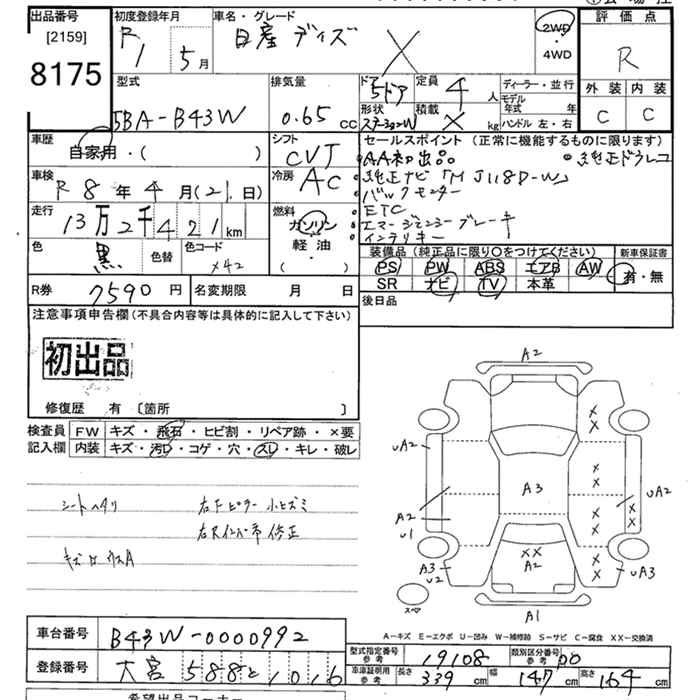 出品番号 初度登録年月 車名・グレード 評価点
[2159] R 1 年 5月 日産 デイズ 2WD・4WD R
8175 型式 排気量 ドア 5ドア 定員 4人 ディーラー・並行 外装 内装
5BA-B43W 0.65 cc 形状 積載 × kg モデル年式 年 ハンドル 左・右 C C
車歴 シフト セールスポイント (正常に機能するものに限ります)
自家用・( ) CVT AAネ初出品 純正ドラレコ
車検 R 8年 4月 (21日) 冷房 AC 純正ナビ「MJ118D-W」
バックセンサー
走行 13万2千421km 燃料 ETC
ガソリン エマージェンシーブレーキ
色 黒 色替 色コード X42 軽油・( ) インテリキー
装備品 (純正品に限り〇をつけてください) 新車保証書
PS PW ABS エアB AW 有・無
SR ナビ TV 本革
R券 7590円 名変期限 月 日 後日品
注意事項申告欄(不具合内容等は具体的に記入して下さい)
初出品
修復歴 有 〔箇所 〕
検査員 FW キズ・飛石・ヒビ割・リペア跡・×要
記入欄 内装 キズ・汚レ・コゲ・穴・スレ・キレ・破レ
シートヘタリ 右下ピラー小ヒズミ
右Rインパネ 修正
A2
uA2
A3
uA2
A2
u1
XX
A2
A3
u2
uA3
スペア
A1
A-キズ E-エクボ U-凹み W-補修跡 S-サビ C-腐食 XX-交換済
車台番号 B43W-0000992
型式指定番号 参考 19108 類別区分番号 参考
登録番号 大宮 588 と 1016
車庫証明用 参考 長さ 339cm 幅 147cm 高さ 164cm
希望出品コーナー